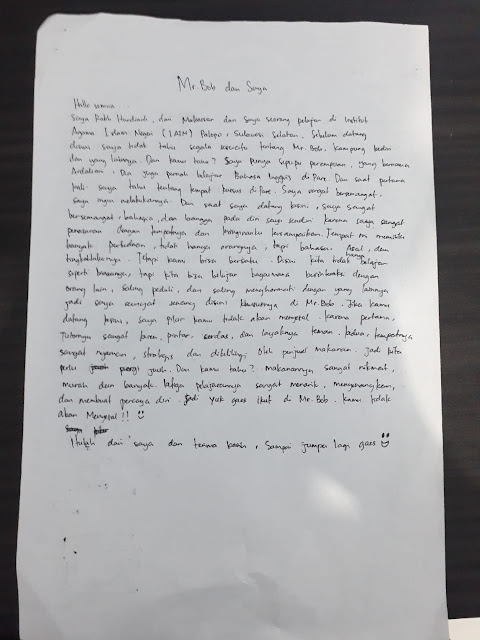 Mr. Bob dan Saya
Hallo semua...
Saya Rabbi Handiardi, dari Makassar dan saya seorang pelajar di Institut
Agama Islam Negeri (IAIN) Palopo, Sulawesi Selatan. Sebelum datang
disini saya tidak tahu segala sesuatu tentang Mr. Bob, kampung kediri
dan yang lainnya. Dan kamu tahu? Saya punya sepupu perempuan, yang bernama
Andalian. Dia juga pernah belajar Bahasa Inggris di Pare. Dan saat pertama
kali saya tahu tentang tempat kursus di Pare. Saya sangat bersemangat,
saya ingin melakukannya. Dan saat saya datang kesini, saya sangat
bersemangat, bahagia, dan bangga pada diri saya sendiri karena saya sangat
penasaran dengan tempatnya dan keinginanku tersampaikan. Tempat ini memiliki
banyak perbedaan, tidak hanya orangnya, tapi bahasa. Asal, dan
tingkahlakunya. Tetapi kami bisa bersatu. Disini kita tidak hanya belajar
seperti biasanya, tapi kita bisa belajar bagaimana berinteraksi dengan
orang lain, saling peduli, dan saling menghormati dengan yang lainnya
jadi saya sangat senang disini khususnya di Mr. Bob. Jika kamu
datang kesini, saya pikir kamu tidak akan menyesal. karena pertama,
Tutornya sangat keren. pintar, cerdas, dan layaknya teman. kedua, tempatnya
sangat nyaman, strategis dan dikelilingi oleh penjual makanan. jadi kita
perlu pergi jauh. Dan kamu tahu? makanannya sangat nikmat,
murah dan banyak. ketiga pelajarannya sangat menarik, menyenangkan,
dan membuat percaya diri. Jadi yuk gaes ikut di Mr. Bob. kamu tidak
akan Menyesal!!
Itulah dari saya dan terima kasih, Sampai jumpa lagi gaes